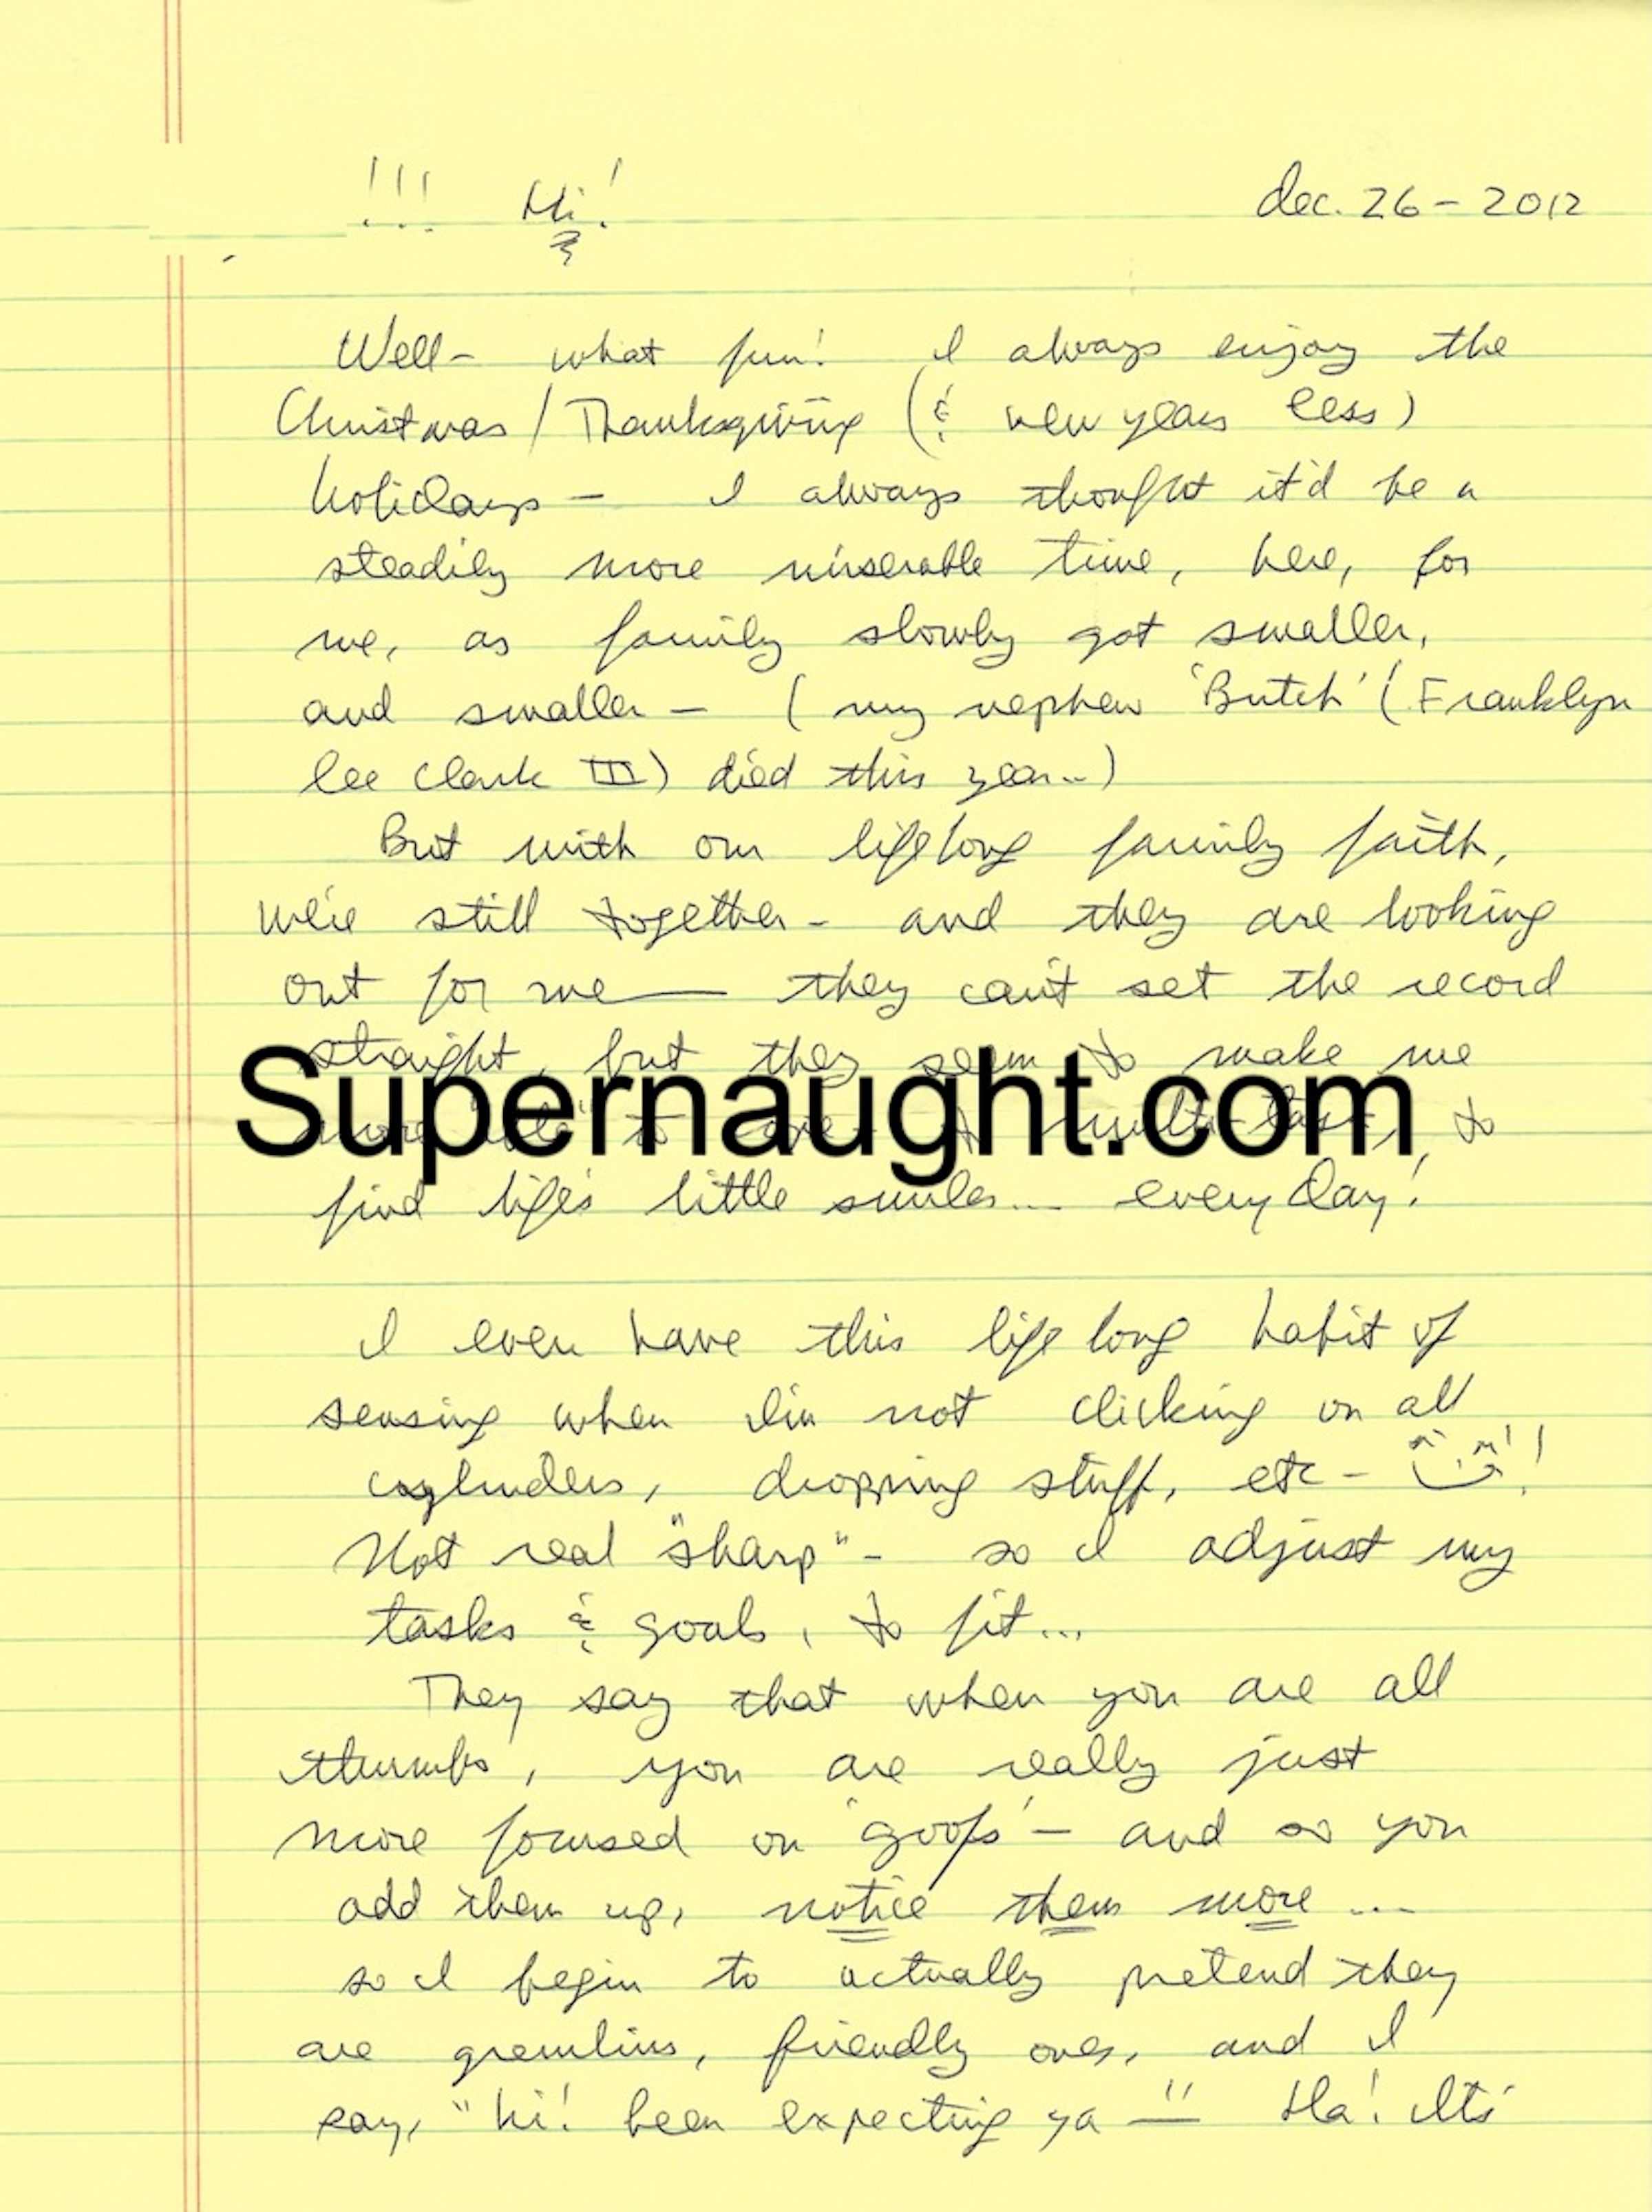 !!! Hi! dec. 26 - 2012
Well - what fun! I always enjoy the
Christmas / Thanksgiving (& new years less)
holidays - I always thought it'd be a
steadily more miserable time, here, for
me, as family slowly got smaller,
and smaller - (my nephew 'Butch' (Franklyn
lee Clark III) died this year..)
But with our lifelong family faith,
we're still together - and they are looking
out for me — they can't set the record
straight, but they seem to make me
Supernaught.com
more to to
find life's little smiles... every day!
I even have this life long habit of
sensing when I'm not clicking on all
cylinders, dropping stuff, etc - !!
Not real "sharp" - so I adjust my
tasks & goals, to fit...
They say that when you are all
thumbs', you are really just
more focused on 'goofs' - and so you
add them up, notice them more ...
so I begin to actually pretend they
are gremlins, friendly ones, and I
say, "hi! been expecting ya — !! Ha! It's